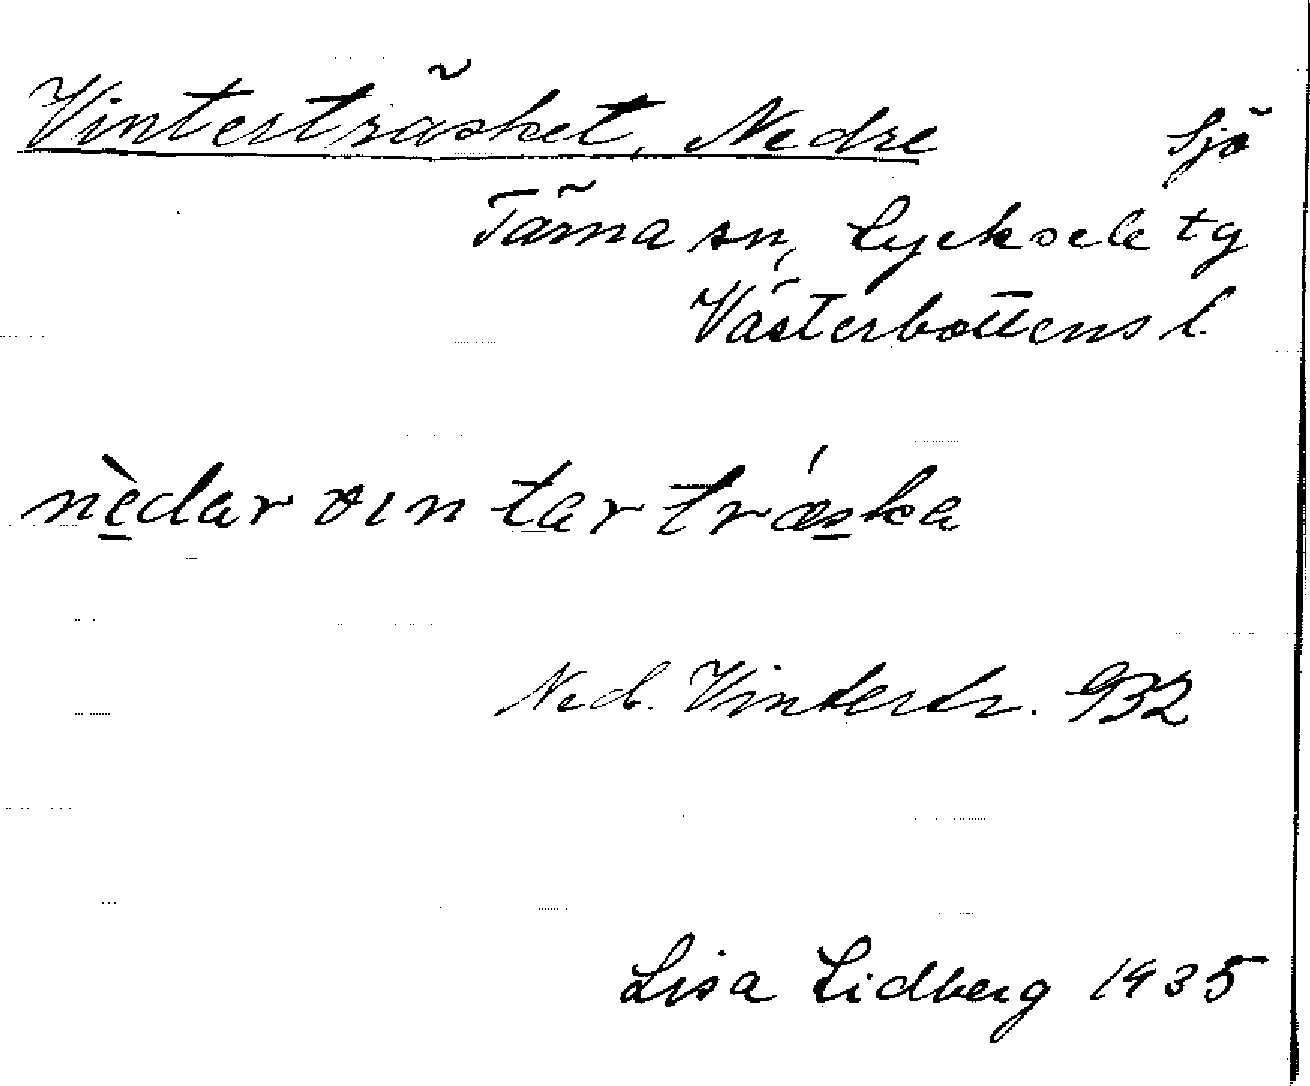 Vinterträsket, Nedre Sjö
Tärna sn, Lycksele tg
Västerbottens l.
nèdar vɪntartrǽska
Ned. Vintertr. 932
Lisa Lidberg 1935